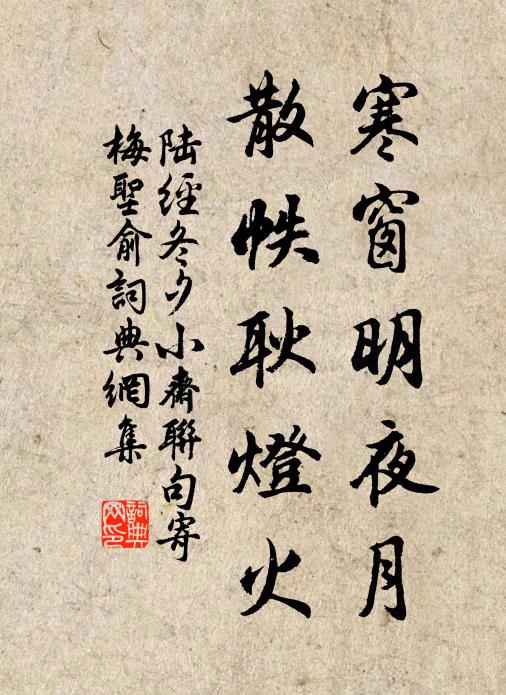 寒窗明夜月
散帙耿燈火
陆經冬夕小齋聯句寄
梅聖俞詞典網集
詞典
网印